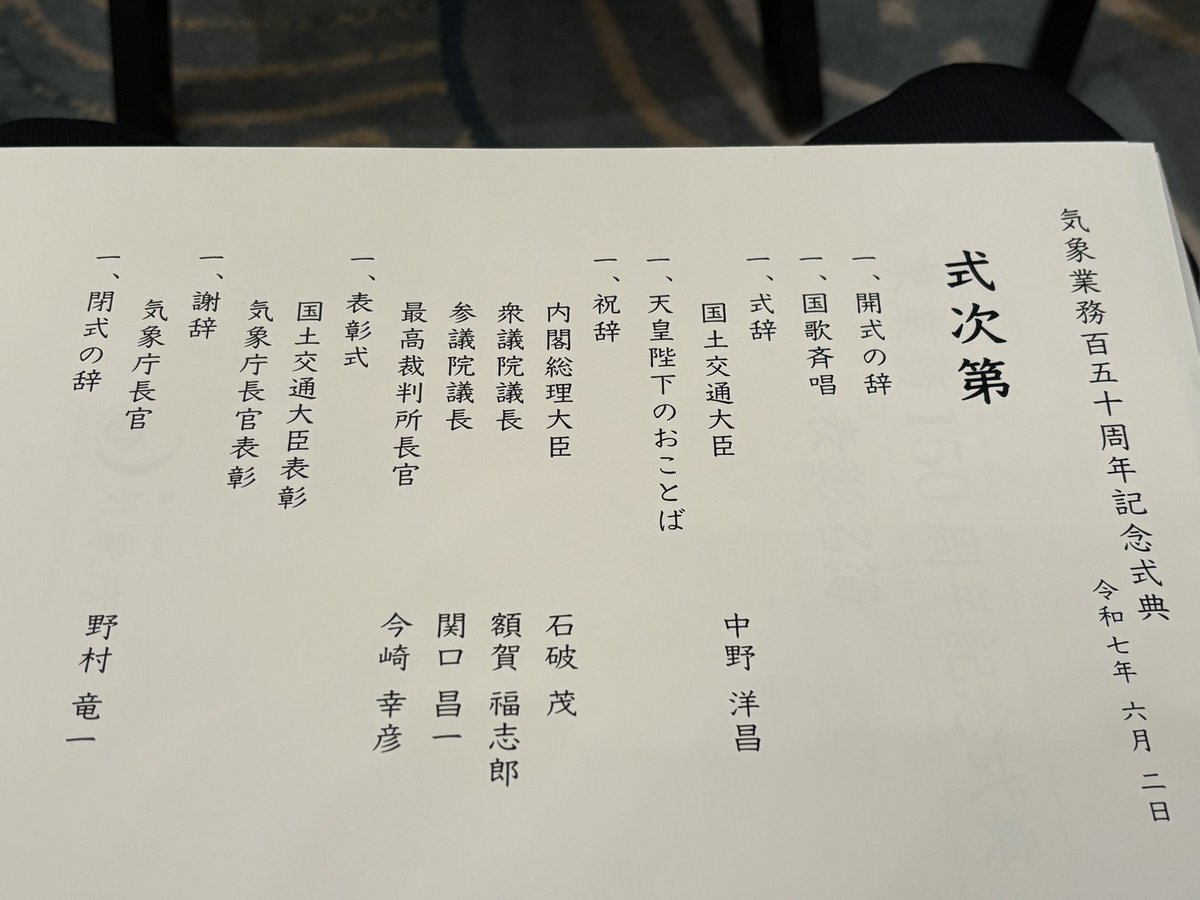 気象業務百五十周年記念式典
令和七年 六月 二日
式次第
一、開式の辞
一、国歌斉唱
一、式辞
国土交通大臣 中野 洋昌
一、天皇陛下のおことば
一、祝辞
内閣総理大臣 石破 茂
衆議院議長 額賀 福志郎
参議院議長 関口 昌一
最高裁判所長官 今崎 幸彦
一、表彰式
国土交通大臣表彰
気象庁長官表彰
一、謝辞
気象庁長官 野村 竜一
一、閉式の辞